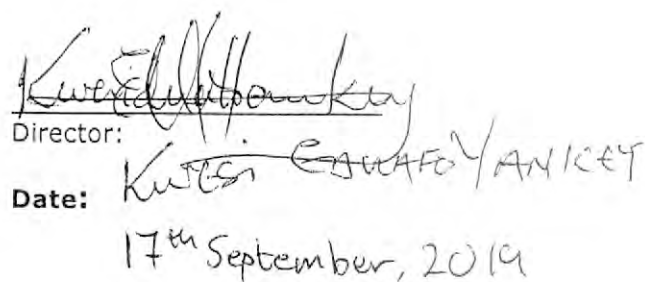 Director:
Kwesi YANKEY
Date:
17th September, 2019